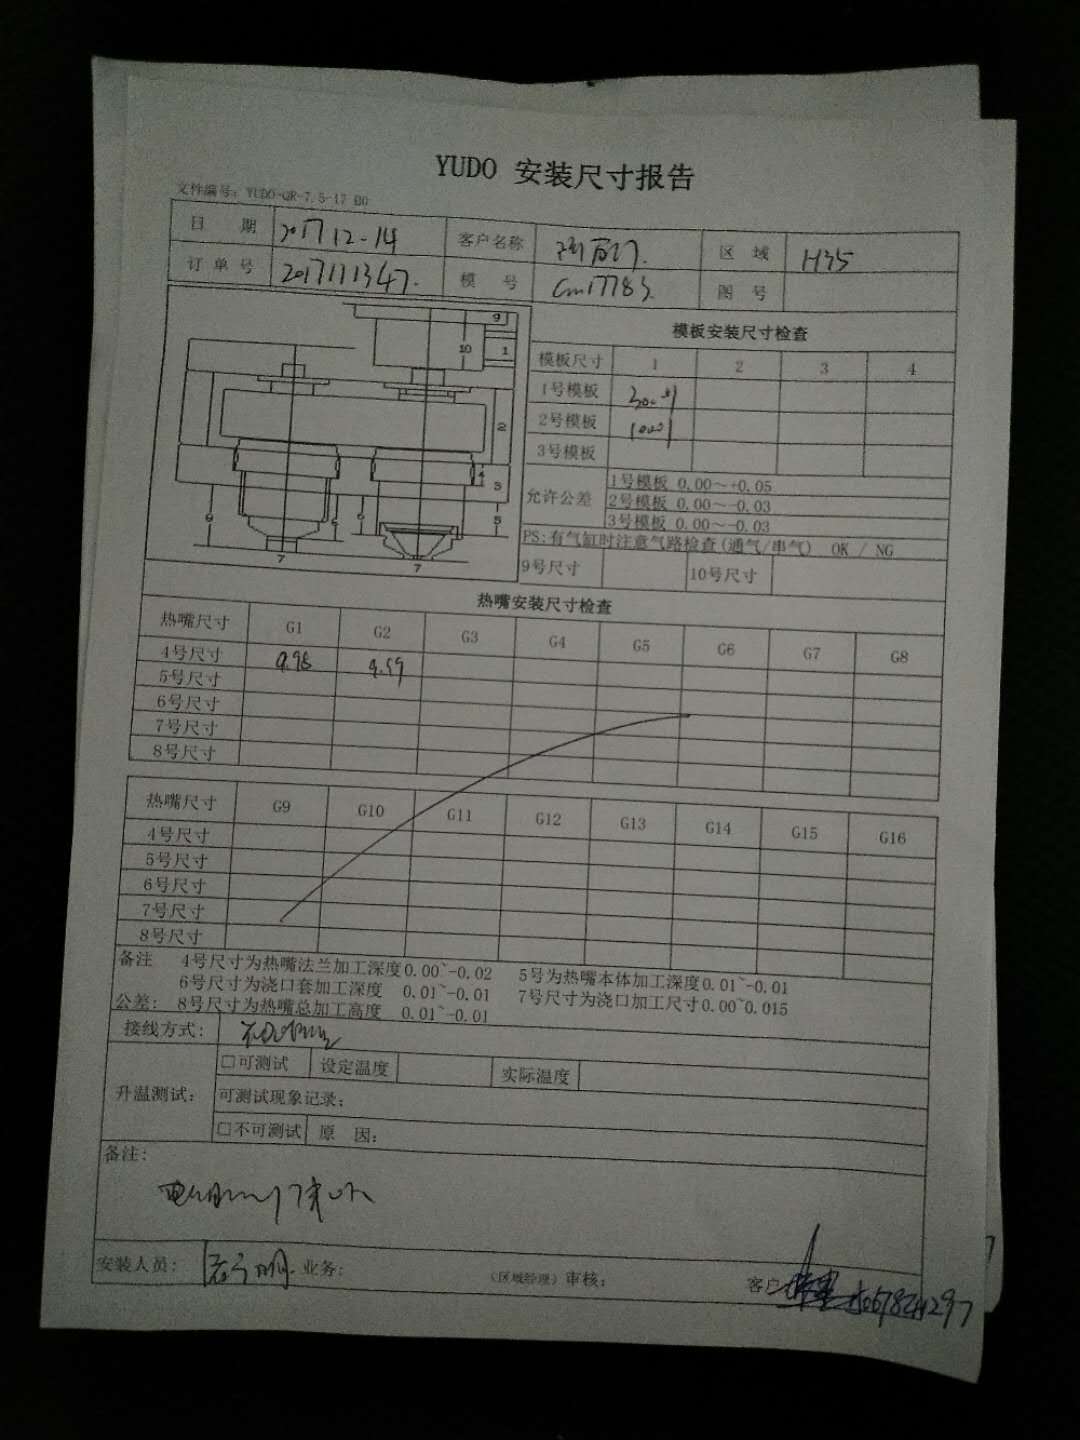 YUDO 安装尺寸报告
文件编号：YUDO-QR-7.5-17 B0
日 期 2017 12-14 客户名称 区 域 H35
订单号 2017111347. 模 号 Cm17783. 图 号
9
10 1
2
4 3
6 6 6 5
7 7
模板安装尺寸检查
模板尺寸 1 2 3 4
1号模板
2号模板
3号模板
允许公差 1号模板 0.00～+0.05
2号模板 0.00～-0.03
3号模板 0.00～-0.03
PS:有气缸时注意气路检查(通气/串气) OK / NG
9号尺寸 10号尺寸
热嘴安装尺寸检查
热嘴尺寸 G1 G2 G3 G4 G5 G6 G7 G8
4号尺寸 9.98 9.99
5号尺寸
6号尺寸
7号尺寸
8号尺寸
热嘴尺寸 G9 G10 G11 G12 G13 G14 G15 G16
4号尺寸
5号尺寸
6号尺寸
7号尺寸
8号尺寸
备注 4号尺寸为热嘴法兰加工深度0.00~-0.02 5号为热嘴本体加工深度0.01~-0.01
6号尺寸为浇口套加工深度 0.01~-0.01 7号尺寸为浇口加工尺寸0.00~0.015
公差: 8号尺寸为热嘴总加工高度 0.01~-0.01
接线方式:
升温测试: □可测试 设定温度 实际温度
可测试现象记录:
□不可测试 原 因:
备注:
安装人员: 业务: (区域经理) 审核: 客户